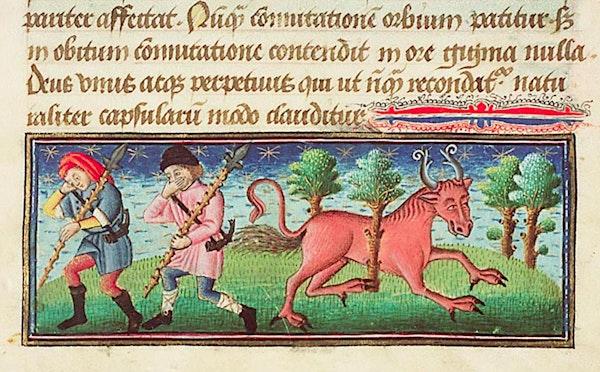 pariter affectat. Nuq̃ cõmutatione orbium patitur. sʒ
in obitum cõmutatione contendit in ore gigma nulla.
Deus vnus atqʒ perpetuus qui ut nq̃ recondit᷑ natu
raliter capsularũ modo clauditur